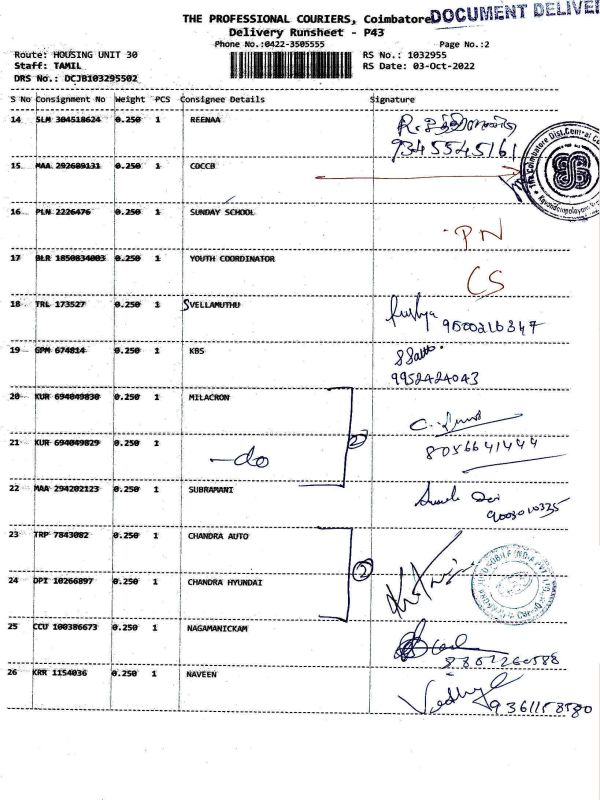 THE PROFESSIONAL COURIERS, Coimbatore
DOCUMENT DELIVER
Delivery Runsheet - P43
Phone No.:0422-3505555 Page No.:2
Route: HOUSING UNIT 30 RS No.: 1032955
Staff: TAMIL RS Date: 03-Oct-2022
DRS No.: DCJB103295502
S No Consignment No Weight PCS Consignee Details Signature
14 SLM 304518624 0.250 1 REENAA
9345545161
15 MAA 292689131 0.250 1 CDCCB
Coimbatore Dist. Central Co
16 PLN 2226476 0.250 1 SUNDAY SCHOOL
PN
17 BLR 1850834003 0.250 1 YOUTH COORDINATOR
CS
18 TRL 173527 0.250 1 SVELLAMUTHU
9500216347
19 GPM 674814 0.250 1 KBS
9952424043
20 KUR 694049830 0.250 1 MILACRON
21 KUR 694049829 0.250 1 -do 2
8056641444
22 MAA 294202123 0.250 1 SUBRAMANI
9003010335
23 TRP 7843082 0.250 1 CHANDRA AUTO
2
24 DPI 10266897 0.250 1 CHANDRA HYUNDAI
25 CCU 100386673 0.250 1 NAGAMANICKAM
26 KRR 1154036 0.250 1 NAVEEN
9361158580